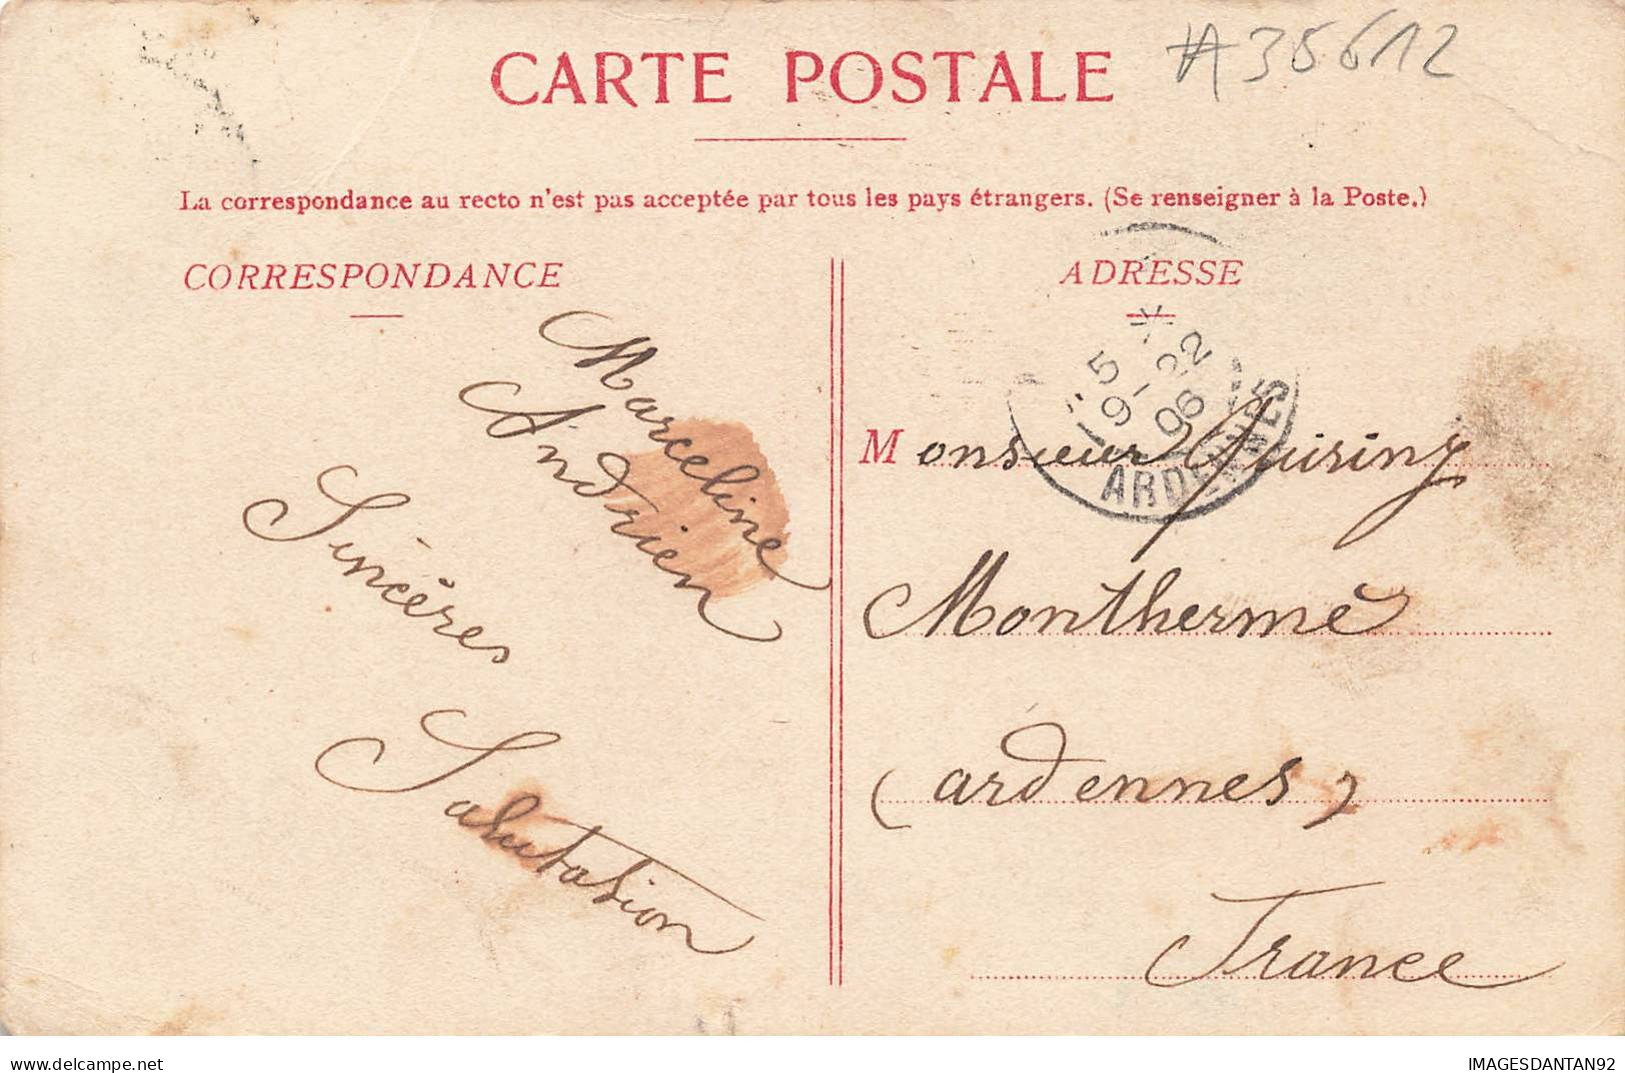 CARTE POSTALE
#35612
La correspondance au recto n'est pas acceptée par tous les pays étrangers. (Se renseigner à la Poste.)
CORRESPONDANCE
ADRESSE
Marceline
Andrien
Sincères
Salutation
5
9-22
06
ARDENNES
Monsieur Quiriny
Monthermé
(ardennes)
France
delcampe.net
IMAGESDANTAN92